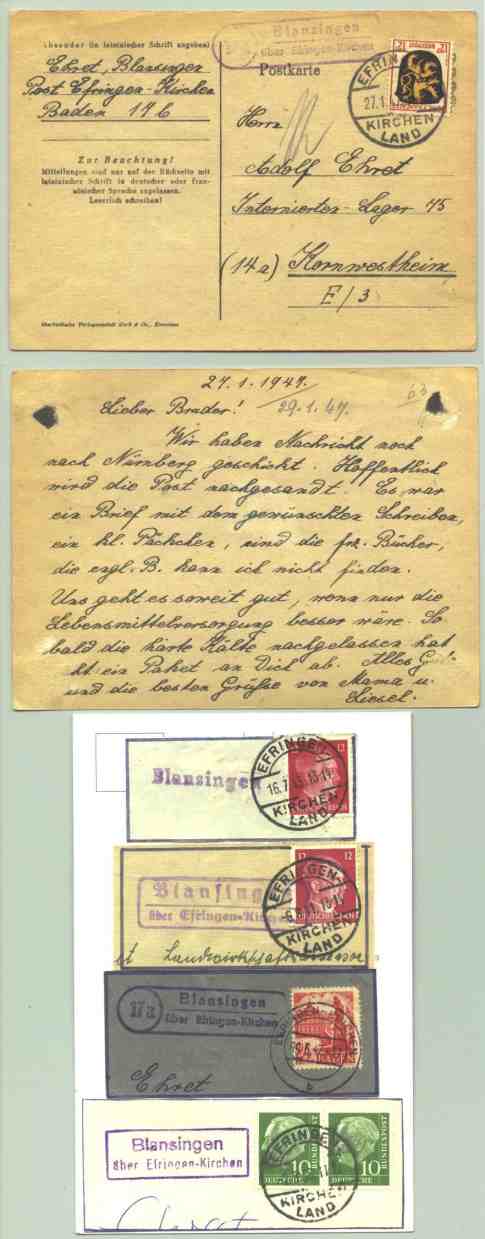 Blansingen
über Efringen-Kirchen
Absender (in lateinischer Schrift angeben)
Ehret, Blansingen
Post Efringen-Kirchen
Baden 17b
Zur Beachtung!
Mitteilungen sind nur auf der Rückseite mit
lateinischer Schrift in deutscher oder fran-
zösischer Sprache zugelassen.
Leserlich schreiben!
Postkarte
12
EFRINGEN-
27.1.
KIRCHEN
LAND
Herrn
Adolf Ehret
Internierten-Lager 75
(14a) Kornwestheim
E/3
27.1.1947.
29.1.47.
Lieber Bruder!
Wir haben Nachricht noch
nach Nürnberg geschickt. Hoffentlich
wird die Post nachgesandt. Es war
ein Brief mit dem gewünschten Schreiben,
ein kl. Päckchen, sind die frz. Bücher,
die engl. B. kann ich nicht finden.
Uns geht es soweit gut, wenn nur die
Lebensmittelversorgung besser wäre. So
bald die harte Kälte nachgelassen hat
ht ein Paket an Dich ab. Alles
und die besten Grüße von Mama u.
Liesel.
Blansingen
12
EFRINGEN-
16.7.
KIRCHEN
LAND
Blansing
über Efringen-Kirchen
12
EFRINGEN-
KIRCHEN
LAND
Landwirtschaftsassessor
17a
Blansingen
über Efringen-Kirchen
Ehret
Blansingen
über Efringen-Kirchen
10
DEUTSCHE
BUNDESPOST
10
DEUTSCHE
BUNDESPOST
EFRINGEN-
KIRCHEN
LAND